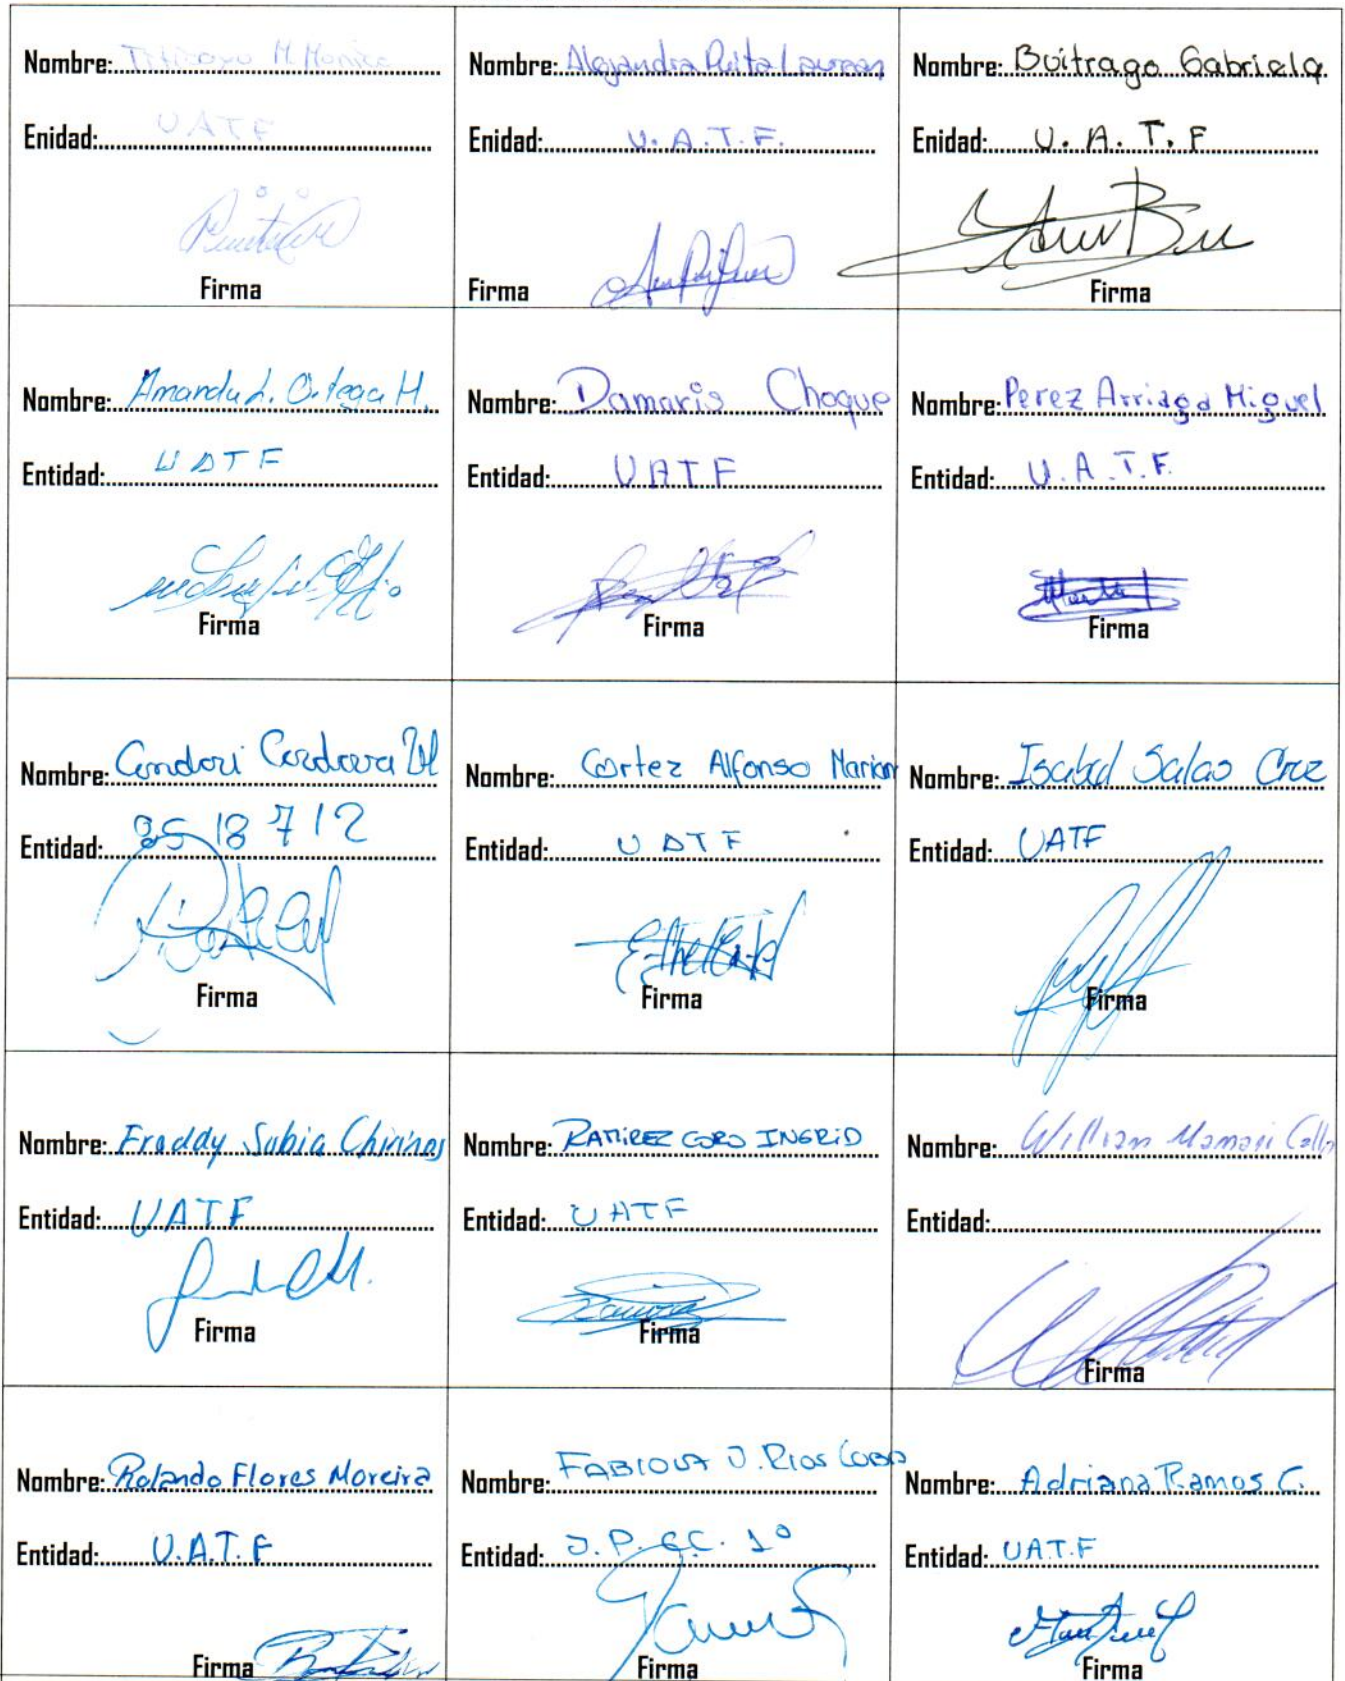 Nombre: M. Monica
Enidad: UATF
Firma
Nombre: Alejandra
Enidad: U.A.T.F.
Firma
Nombre: Buitrago Gabriela
Enidad: U.A.T.F
Firma
Nombre: Amanda L. Ortega H.
Entidad: UATF
Firma
Nombre: Damaris Choque
Entidad: UATF
Firma
Nombre: Perez Arriaga Miguel
Entidad: U.A.T.F.
Firma
Nombre: Condori Cordova
Entidad: 8518712
Firma
Nombre: Cortez Alfonso Marian
Entidad: UATF
Firma
Nombre: Isabel Salas Cruz
Entidad: UATF
Firma
Nombre: Freddy Subia Chirinos
Entidad: UATF
Firma
Nombre: RAMIREZ CORO INGRID
Entidad: UATF
Firma
Nombre: Willian Mamani
Entidad:
Firma
Nombre: Rolando Flores Moreira
Entidad: U.A.T.F
Firma
Nombre: FABIOLA J. Rios
Entidad: J.P. 1º
Firma
Nombre: Adriana Ramos C.
Entidad: UAT.F
Firma